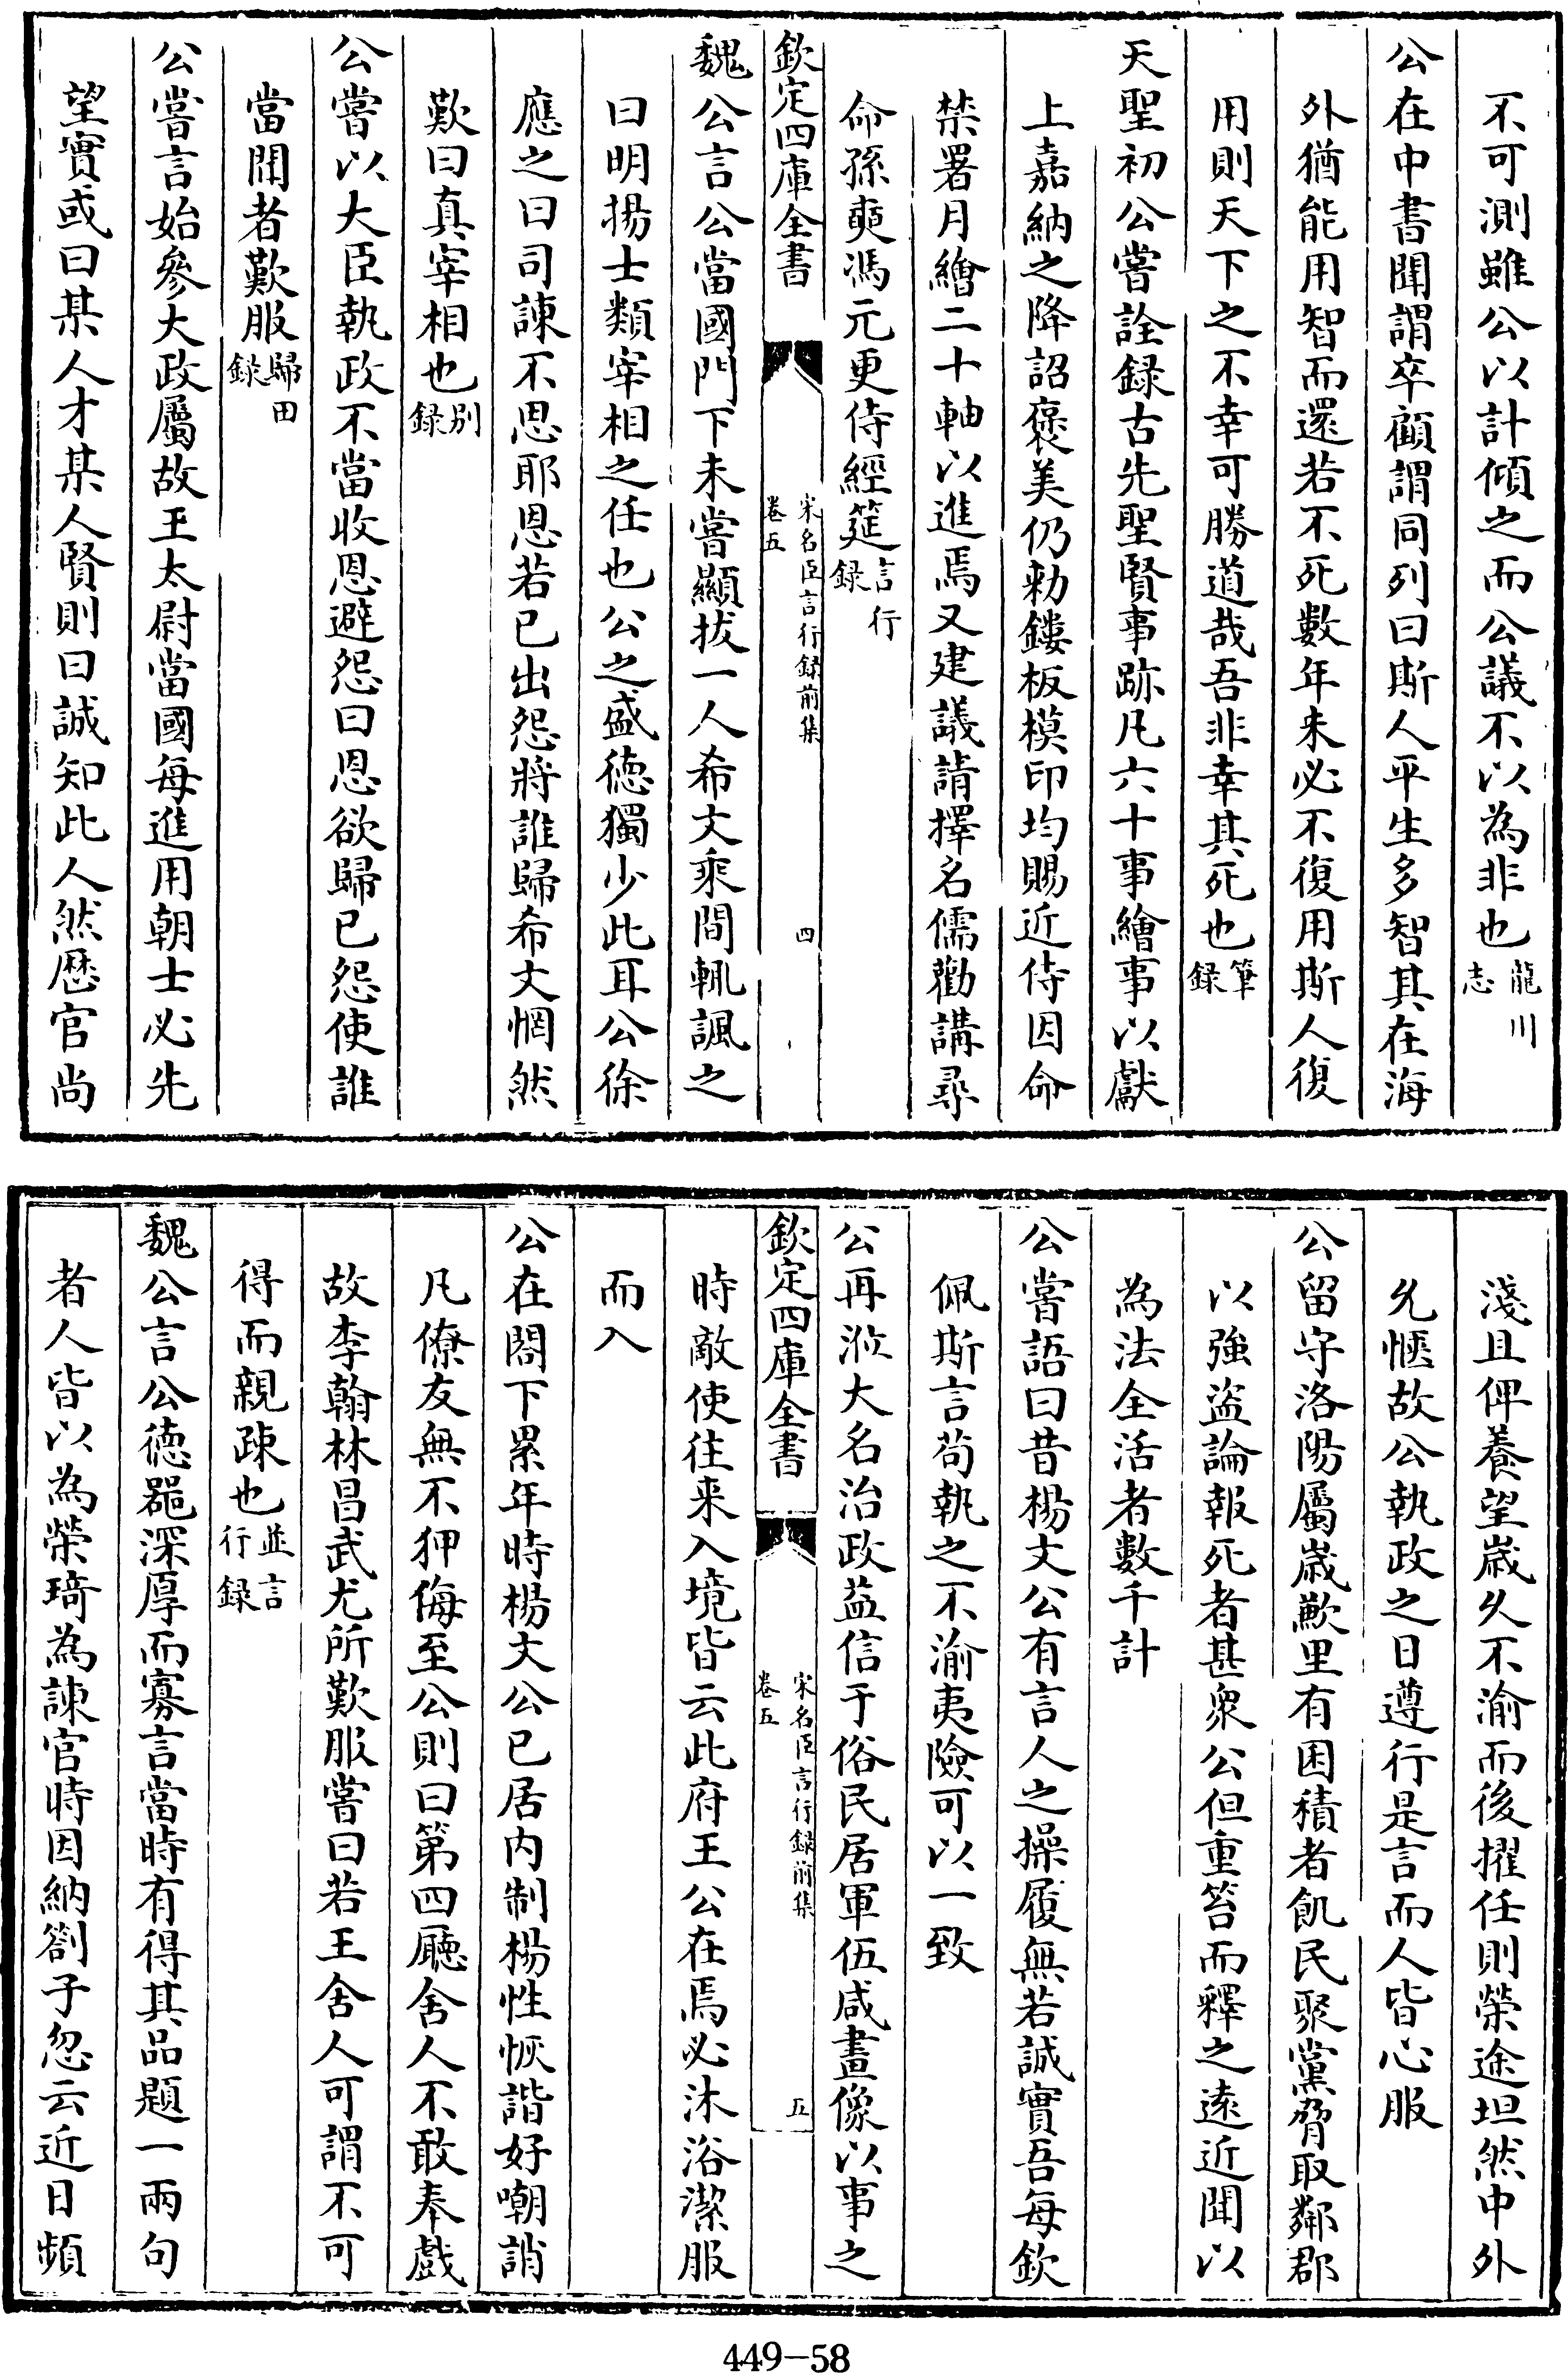 不可測雖公以計傾之而公議不以為非也龍川志
公在中書聞謂卒顧謂同列曰斯人平生多智其在海
外猶能用智而還若不死數年未必不復用斯人復
用則天下之不幸可勝道哉吾非幸其死也筆錄
天聖初公嘗詮録古先聖賢事跡凡六十事繪事以獻
上嘉納之降詔褒美仍勅鏤板模印均賜近侍因命
禁署月繪二十軸以進焉又建議請擇名儒勸講尋
命孫奭馮元更侍經筵言行録
欽定四庫全書
宋名臣言行録前集
卷五
四
魏公言公當國門下未嘗顯拔一人希文乘間輒諷之
曰明揚士類宰相之任也公之盛德獨少此耳公徐
應之曰司諫不思耶恩若已出怨將誰歸希文惘然
歎曰真宰相也别録
公嘗以大臣執政不當收恩避怨曰恩欲歸已怨使誰
當聞者歎服歸田録
公嘗言始參大政屬故王太尉當國每進用朝士必先
望實或曰某人才某人賢則曰誠知此人然歷官尚
淺且俾養望嵗久不渝而後擢任則榮途坦然中外
允愜故公執政之日遵行是言而人皆心服
公留守洛陽屬嵗歉里有困積者飢民聚黨脅取鄰郡
以強盜論報死者甚衆公但重笞而釋之遠近聞以
為法全活者數千計
公嘗語曰昔楊文公有言人之操履無若誠實吾每欽
佩斯言茍執之不渝夷險可以一致
公再涖大名治政益信于俗民居軍伍咸畫像以事之
欽定四庫全書
宋名臣言行録前集
卷五
五
時敵使往来入境皆云此府王公在焉必沐浴潔服
而入
公在閣下累年時楊文公已居内制楊性恢諧好嘲誚
凡僚友無不狎侮至公則曰第四廳舍人不敢奉戲
故李翰林昌武尤所歎服嘗曰若王舍人可謂不可
得而親疎也並言行録
魏公言公德器深厚而寡言當時有得其品題一兩句
者人皆以為榮琦為諫官時因納劄子忽云近日頻
449—58